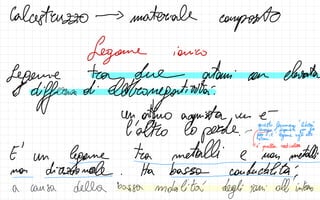 Calcestruzzo → materiale composto
Legame ionico
Legame tra due atomi con elevata
differenza di elettronegatività.
un atomo acquista un e⁻
l'altro lo perde
E' un legame tra metalli e non metalli
non direzionale. Ha bassa conducibilità,
a causa della bassa mobilità degli ioni all'